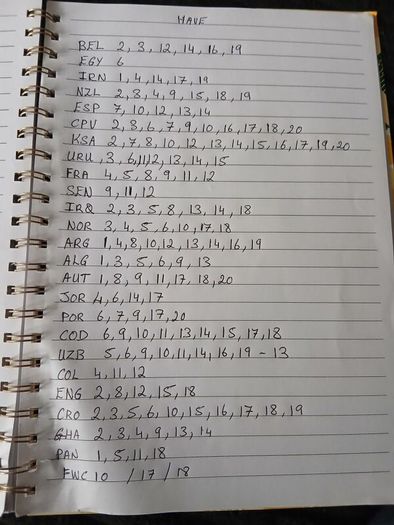 HAVE
BEL 2, 3, 12, 14, 16, 19
EGY 6
IRN 1, 4, 14, 17, 19
NZL 2, 3, 4, 9, 15, 18, 19
ESP 7, 10, 12, 13, 14
CPV 2, 3, 6, 7, 9, 10, 16, 17, 18, 20
KSA 2, 7, 8, 10, 12, 13, 14, 15, 16, 17, 19, 20
URU , 3, 6, 11, 12, 13, 14, 15
FRA 4, 5, 8, 9, 11, 12
SEN 9, 11, 12
IRQ 2, 3, 5, 8, 13, 14, 18
NOR 3, 4, 5, 6, 10, 17, 18
ARG 1, 4, 8, 10, 12, 13, 14, 16, 19
ALG 1, 3, 5, 6, 9, 13
AUT 1, 8, 9, 11, 17, 18, 20
JOR 4, 6, 14, 17
POR 6, 7, 9, 17, 20
COD 6, 9, 10, 11, 13, 14, 15, 17, 18
UZB 5, 6, 9, 10, 11, 14, 16, 19 - 13
COL 4, 11, 12
ENG 2, 8, 12, 15, 18
CRO 2, 3, 5, 6, 10, 15, 16, 17, 18, 19
GHA 2, 3, 4, 9, 13, 14
PAN 1, 5, 11, 18
FWC 10 / 17 / 18